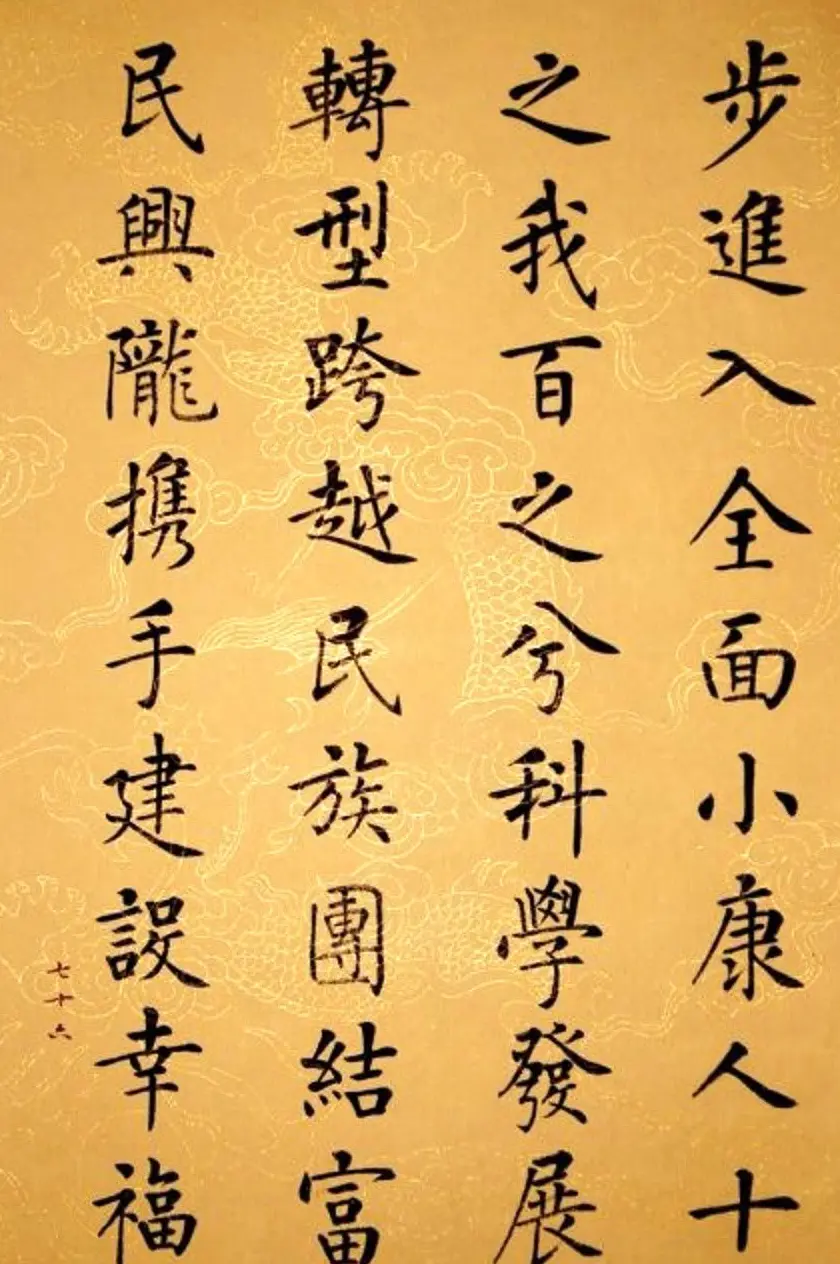 步進入全面小康人十
之我百之兮科學發展
轉型跨越民族團結富
民興隴攜手建設幸福
七十六